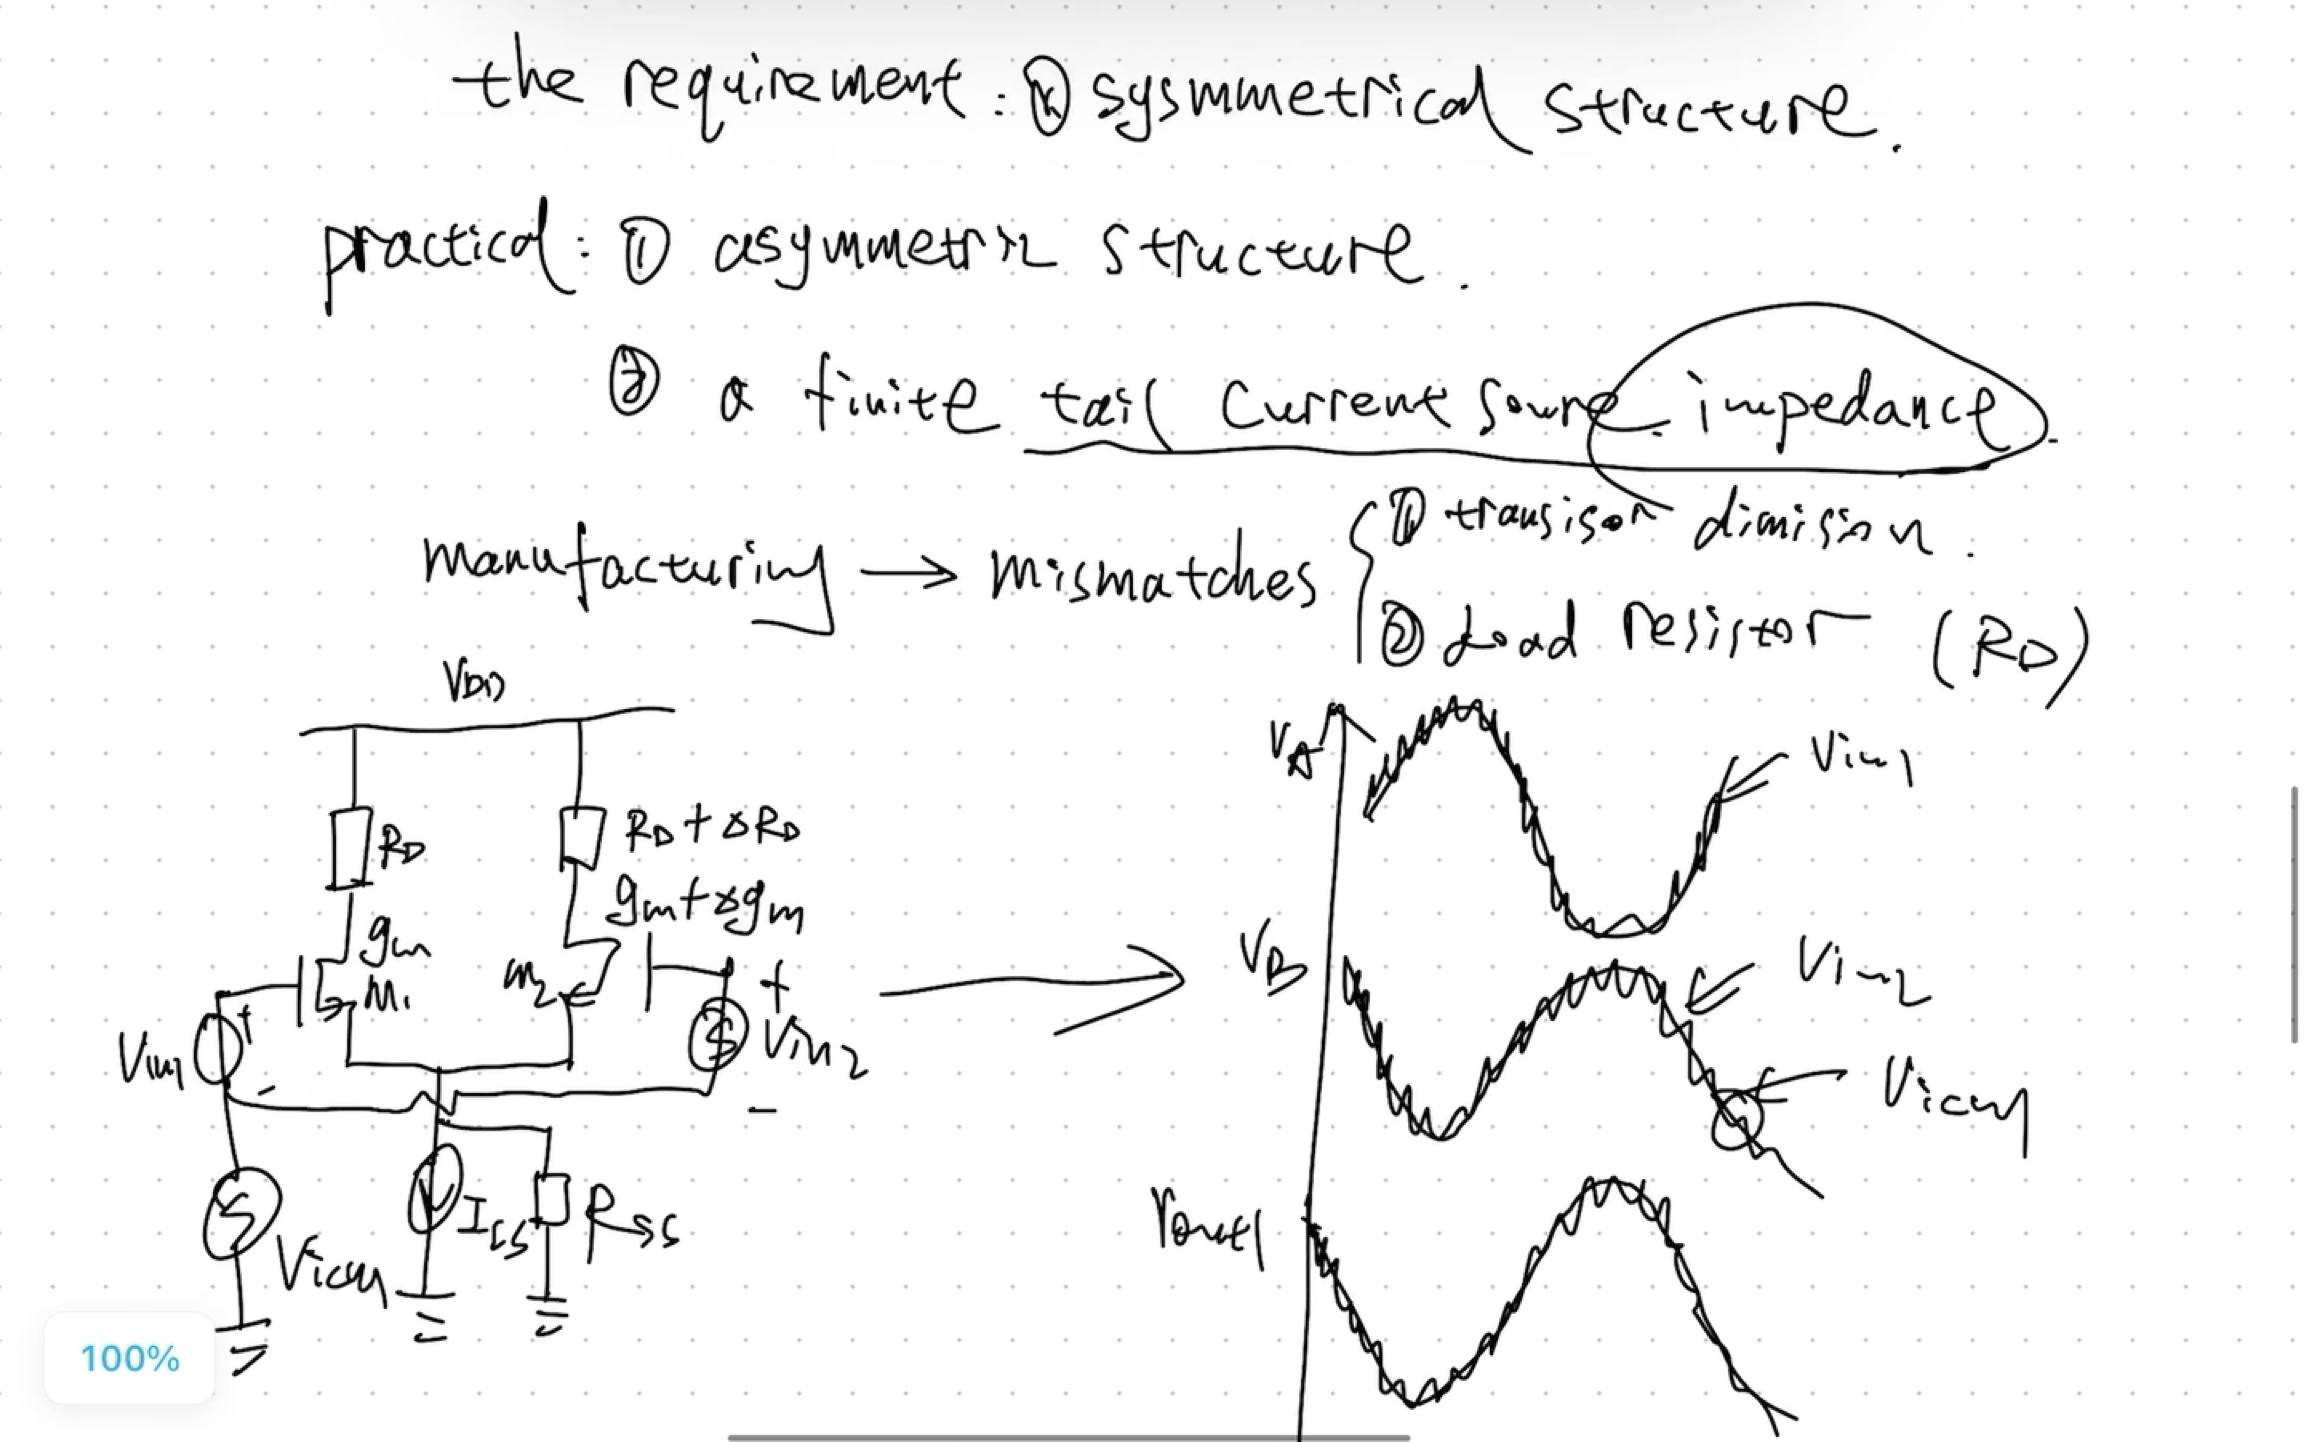 the requirement: sysmmetrical structure.
practical: ① asymmetric structure.
② a finite tail current source impedance.
manufacturing → mismatches { ① transisor dimision.
② Load resistor (RD)
VDD
RD
RD + ΔRD
gm
gm + Δgm
M1
M2
+
+
Vin1
Vin2
-
-
Vicm
ISS
RSS
VA
Vin1
VB
Vin2
Vicm
Vout1
100%